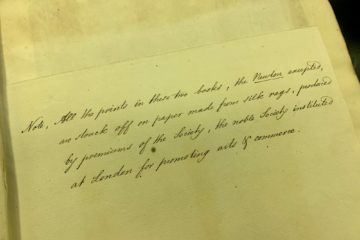 Note, All the prints in these two books, the Newton excepted,
are struck off on paper made from silk rags, produced
by premiums of the Society, the noble Society instituted
at London for promoting arts & commerce.